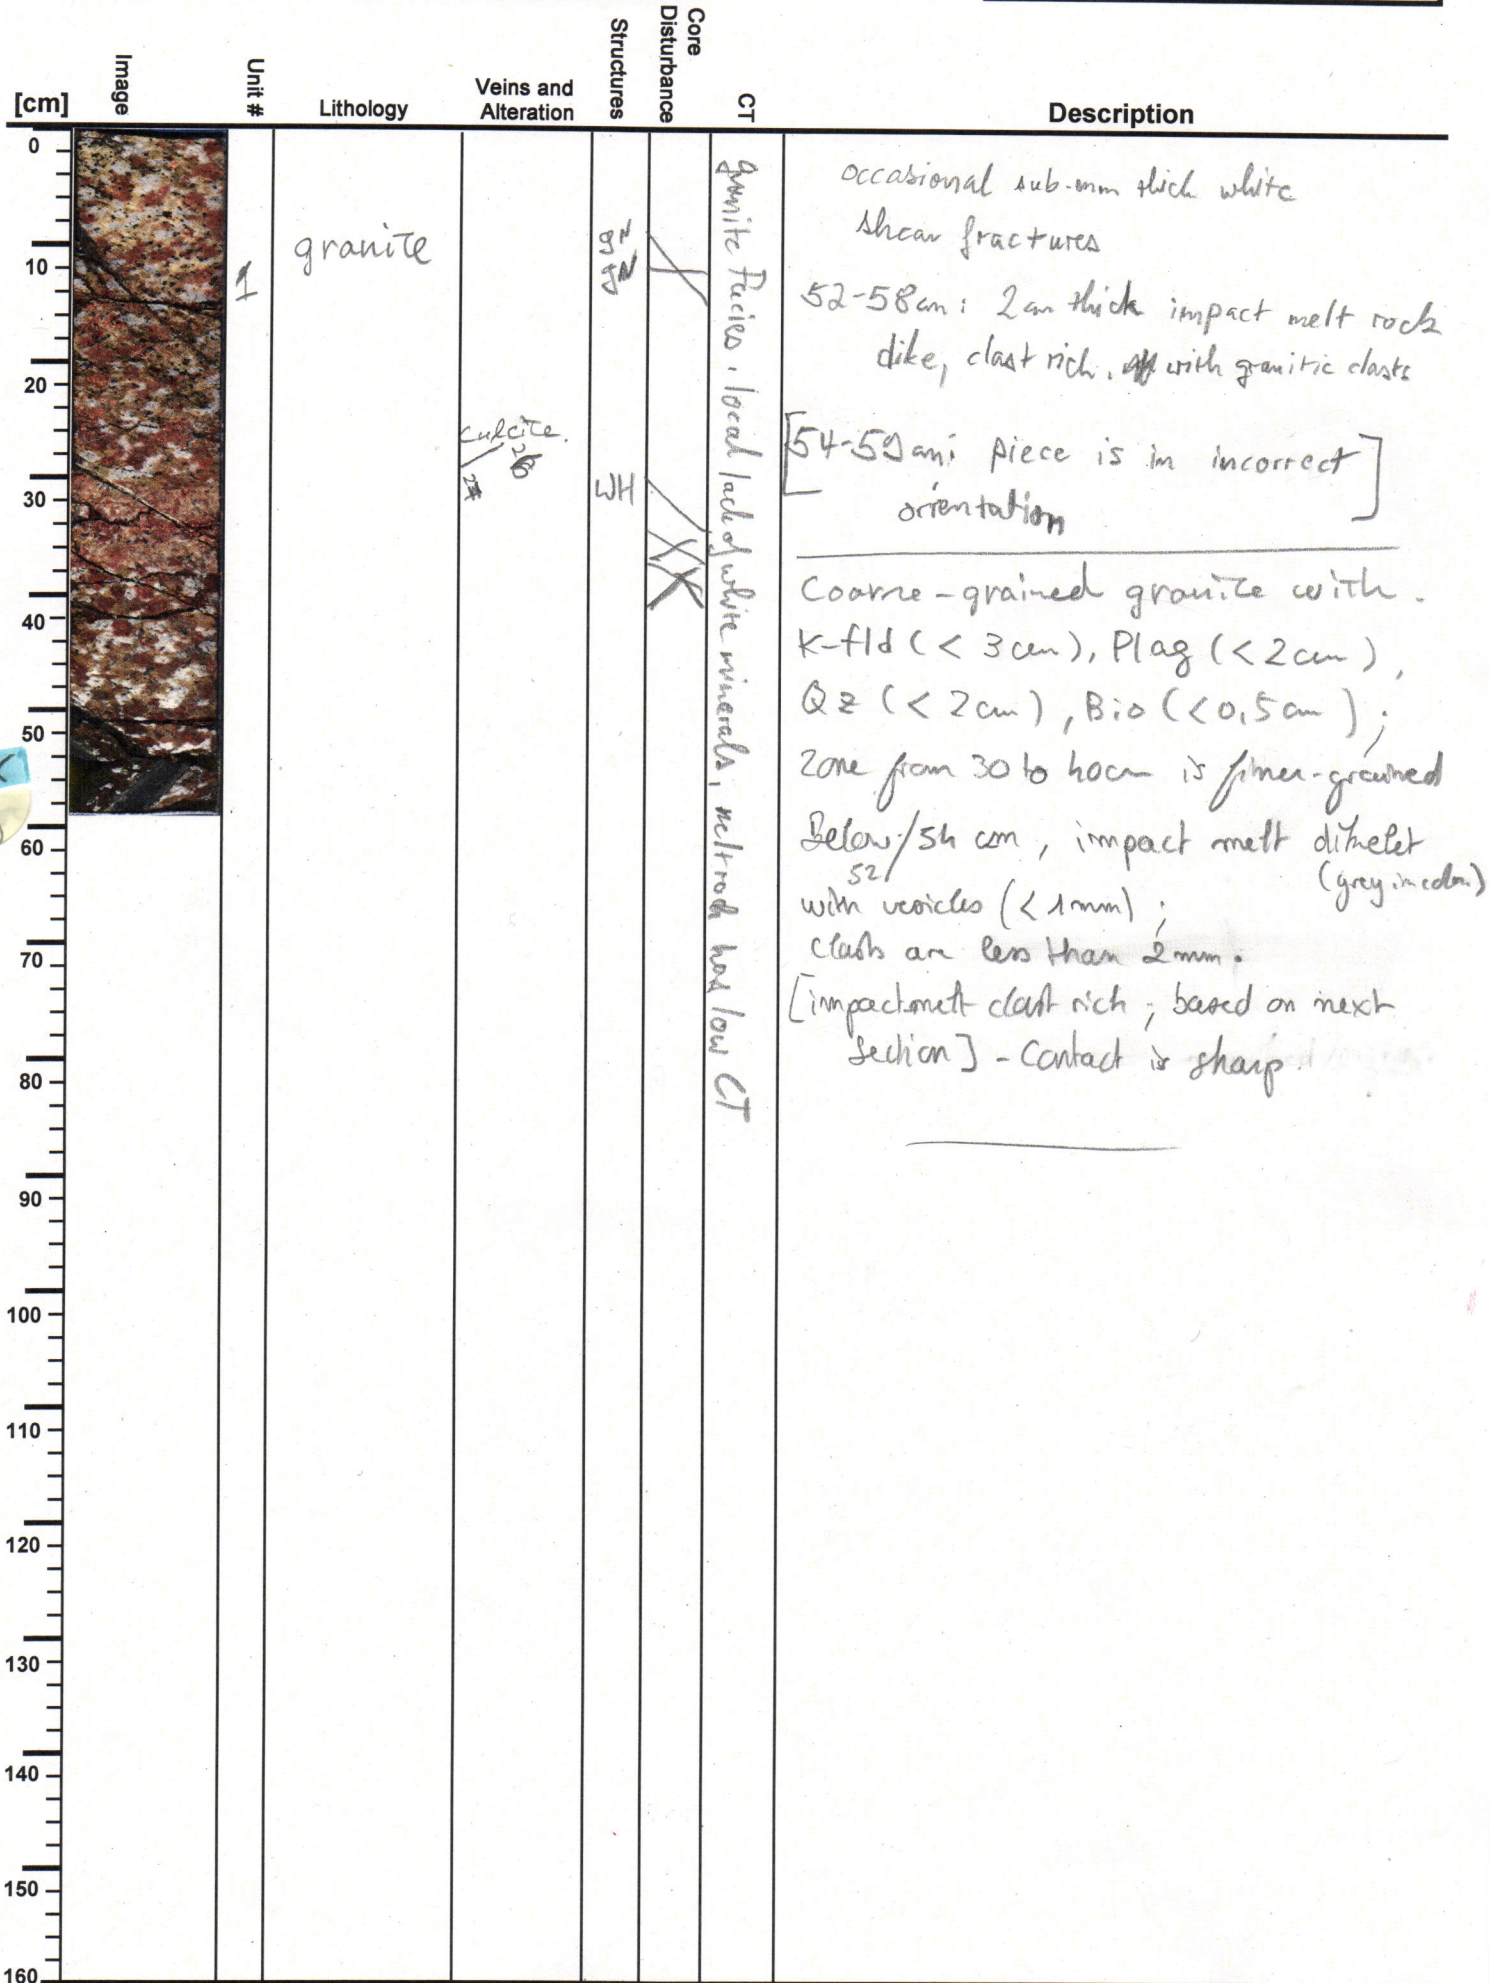 [cm]
Image
Unit #
Lithology
Veins and
Alteration
Structures
Core
Disturbance
CT
Description
0
10
20
30
40
50
60
70
80
90
100
110
120
130
140
150
160
1
granite
calcite.
WH
granite facies. local lack of white minerals, meltrock has low CT
occasional sub-mm thick white
shear fractures
52-58cm: 2cm thick impact melt rock
dike, clast rich, with granitic clasts
[54-59cm: piece is in incorrect
orientation]
Coarse-grained granite with.
K-fld (< 3cm), Plag (< 2cm),
Qz (< 2cm), Bio (< 0,5cm);
Zone from 30 to 40cm is finer-grained
Below/54 cm, impact melt dikelet
52
(grey in color)
with vesicles (< 1mm);
Clasts are less than 2mm.
[impact melt clast rich; based on next
section] - Contact is sharp.